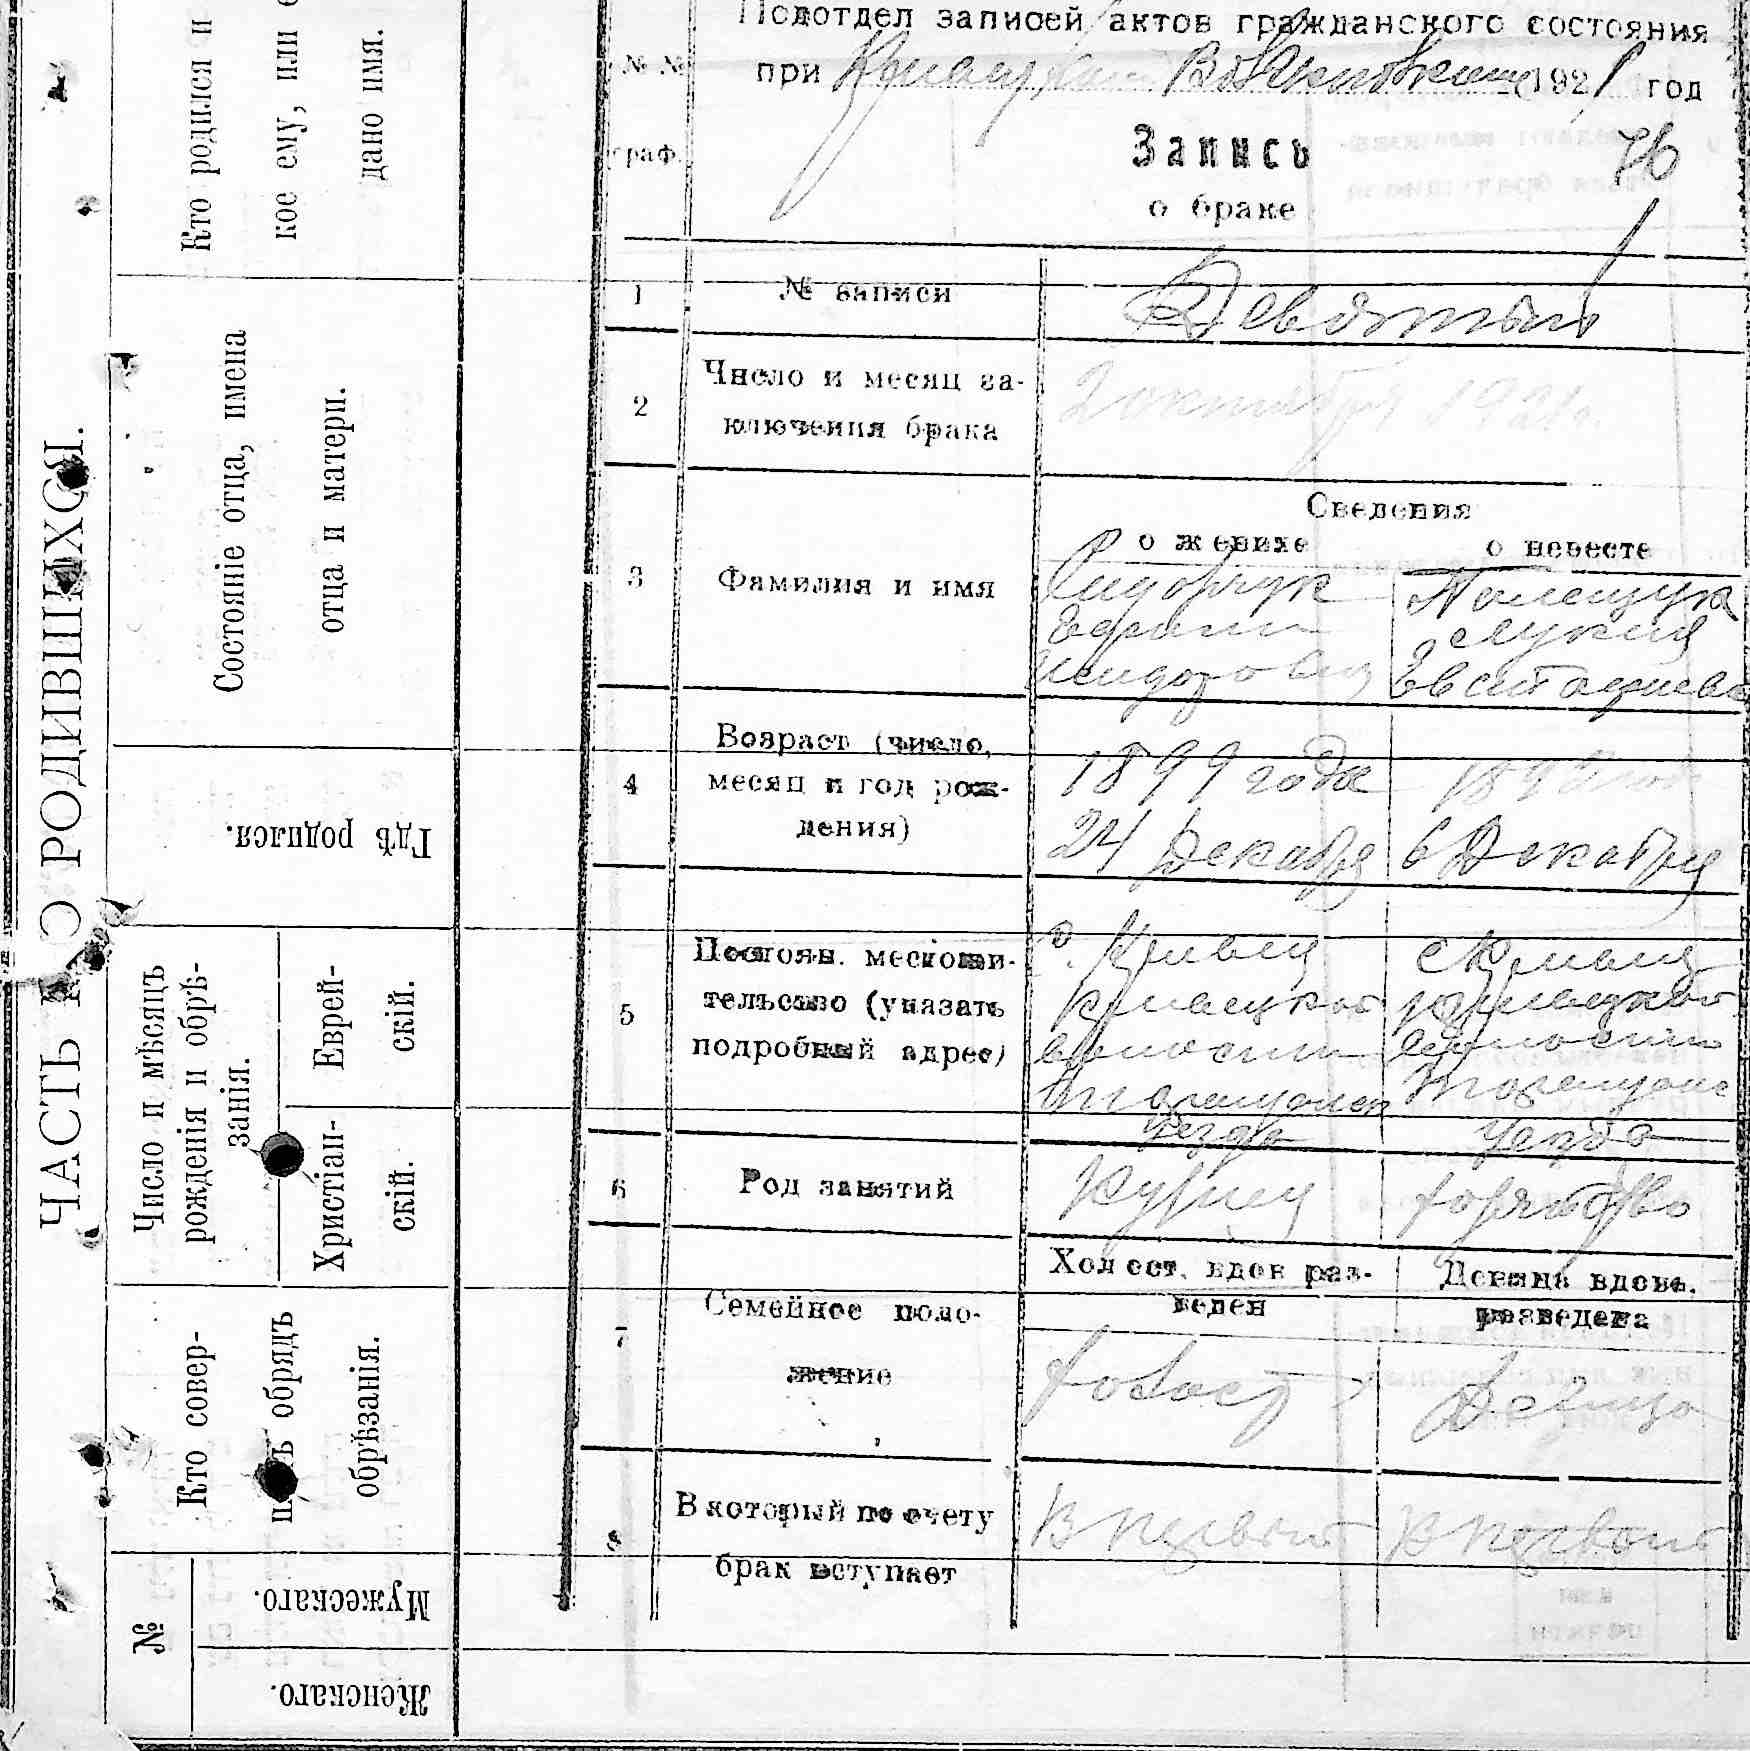 ЧАСТЬ О РОДИВШИХСЯ.
Кто родился и
кое ему, или
дано имя.
Состоянiе отца, имена
отца и матери.
Гдѣ родился.
Число и мѣсяцъ
рожденiя и обрѣ-
занiя.
Еврей-
скiй.
Христiан-
скiй.
Кто совер-
обрядъ
обрѣзанiя.
№
Мужескаго.
Женскаго.
Подотдел записей актов гражданского состояния
при 1921 год
№ №
граф.
Запись 76
о браке
1 № записи Девятый
2 Число и месяц за-
ключения брака
2 октября 1921 г.
Сведения
о женихе о невесте
3 Фамилия и имя
Сидорчук
Ефрем
Исидорович
Полещук
Лукия
Евстафиева
4 Возраст (число,
месяц и год рож-
дения)
1899 года
24 Декабря
6 Декабря
5 Постоян. местожи-
тельство (указать
подробный адрес)
волости
уезда
волости
уезда
6 Род занятий
Холост. вдов раз-
веден
Девица вдова.
разведена
7 Семейное поло-
жение
холост Девица
8 В который по счету
брак вступает
В первый В первый